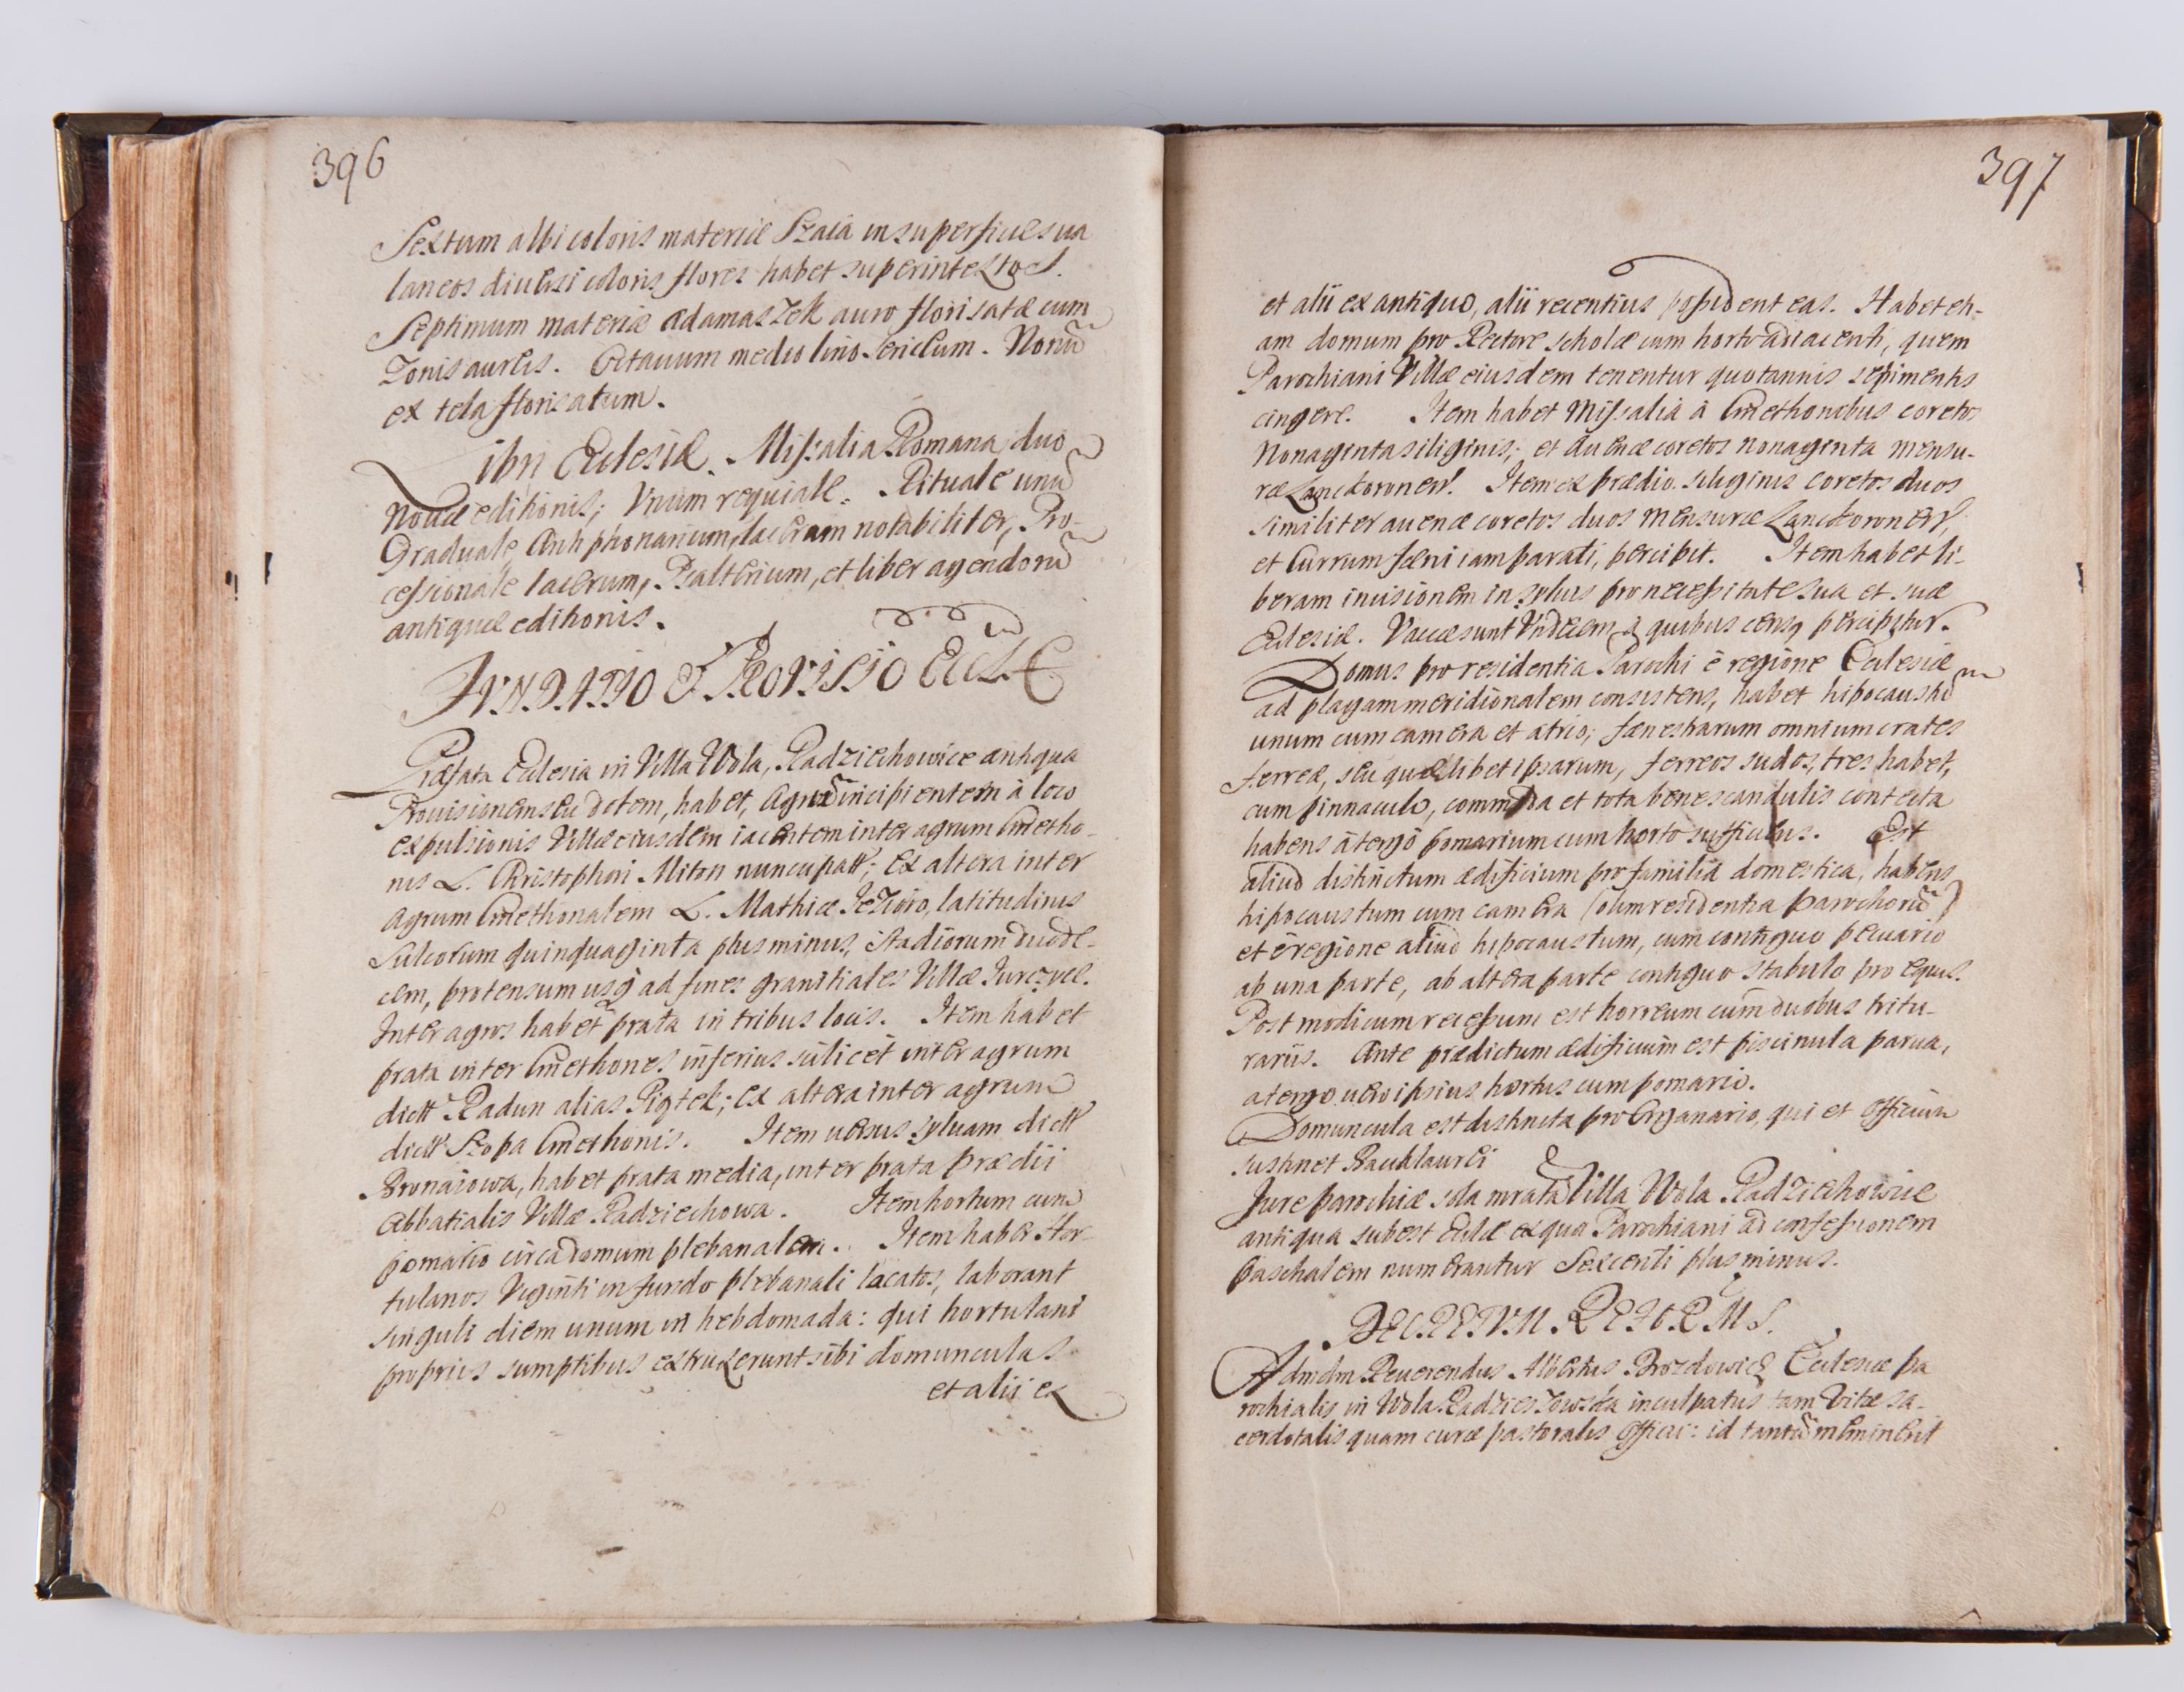 396
Sextum albi coloris materiæ Szaia in superficie sua
laneos diuersi coloris flores habet superintextos.
Septimum materiæ adamaszek auro florisatæ cum
Zonis aureis. Octauum medio lino sericeum. Nonũ
ex tela floricatum.
Libri Eclesiæ. Missalia Romana duo
nouæ editionis; Vnum requiale. Rituale unũ
Graduale, Antiphonarium, lacerum notabiliter, Pro-
cessionale lacerum, Psalterium, et liber agendorũ
antiquæ editionis.
FVNDATIO & PROVISIO ECCLÆ
Præfata Eclesia in Villa Wola, Radziechowice antiqua
Prouisionem seu dotem, habet, Agrũ incipientem à loco
expulsionis Villæ eiusdem iacentem inter agrum Cmetho-
nis L. Christophori Miton nuncupatt; ex altera inter
agrum Cmethonalem L. Mathiæ Jezioro, latitudinis
Sulcorum quinquaginta plus minus, Stadiorum duode-
cem, protensum usq ad fines granitiales Villæ Jurczyce.
Inter agros habet prata in tribus locis. Item habet
prata inter Cmethones inferius scilicet inter agrum
dictt Radun alias Piątek; ex altera inter agrum
dictt Szopa Cmethonis. Item uersus syluam dictt
Bronaiowa, habet prata media, inter prata Prædii
Abbatialis Villæ Radziechowa. Item hortum cum
pomario circa domum plebanalem. Item habet Hor-
tulanos Viginti in fundo plebanali locatos, laborant
singuli diem unum in hebdomada: qui hortulani
propriis sumptibus extruxerunt sibi domunculas
et alii ex
397
et alii ex antiquo, alii recentius possident eas. Habet eti-
am domum pro Rectore scholæ cum horto adiacenti, quem
Parochiani Villæ eiusdem tenentur quotannis sepimentis
cingere. Item habet Missalia à Cmethonibus coretos
Nonaginta siliginis; et Auenæ coretos nonaginta mensu-
ræ Lanckoronen. Item ex prædio siliginis coretos duos
similiter auenæ coretos duos mensuræ Lanckoronen,
et Currum fæni iam parati, percipit. Item habet li-
beram incisionem in syluis pro necessitate sua et suæ
Eclesiæ. Vaccæ sunt Vndecem, à quibus census percipitur.
Domus pro residentia Parochi è regione Eclesiæ
ad plagam meridionalem consistens, habet hipocaustũ
unum cum camera et atrio, fænestrarum omnium crates
ferreæ, seu quælibet ipsarum, ferreos sudos, tres habet,
cum pinnaculo, commoda et tota bene scandulis contecta
habens à tergo pomarium cum horto sufficiens. Est
aliud distinctum ædificium pro familia domestica, habens
hipocaustum cum camera (olim residentia parochorũ)
et è regione aliud hipocaustum, cum contiguo pecuario
ab una parte, ab altera parte contiguo stabulo pro equis.
Post modicum recessum est horreum cum duobus tritu-
rariis. Ante prædictum ædificium est piscinula parua,
a tergo uero ipsius hortus cum pomario.
Domuncula est distincta pro Organario, qui et officium
sustinet Bacalaurei
Jure parochiæ sola murata Villa Wola Radziechowice
antiqua subest Eclæ ex qua Parochiani ad confessionem
paschalem numerantur Sexcenti plus minus.
DECRETVM REFORMS.
Admdm Reuerendus Albertus Brozdowicz Eclesiæ pa
rochialis in Wola Radzieszowska inculpatus tam Vitæ sa-
cerdotalis quam curæ pastoralis officii: id tantũ meminerit